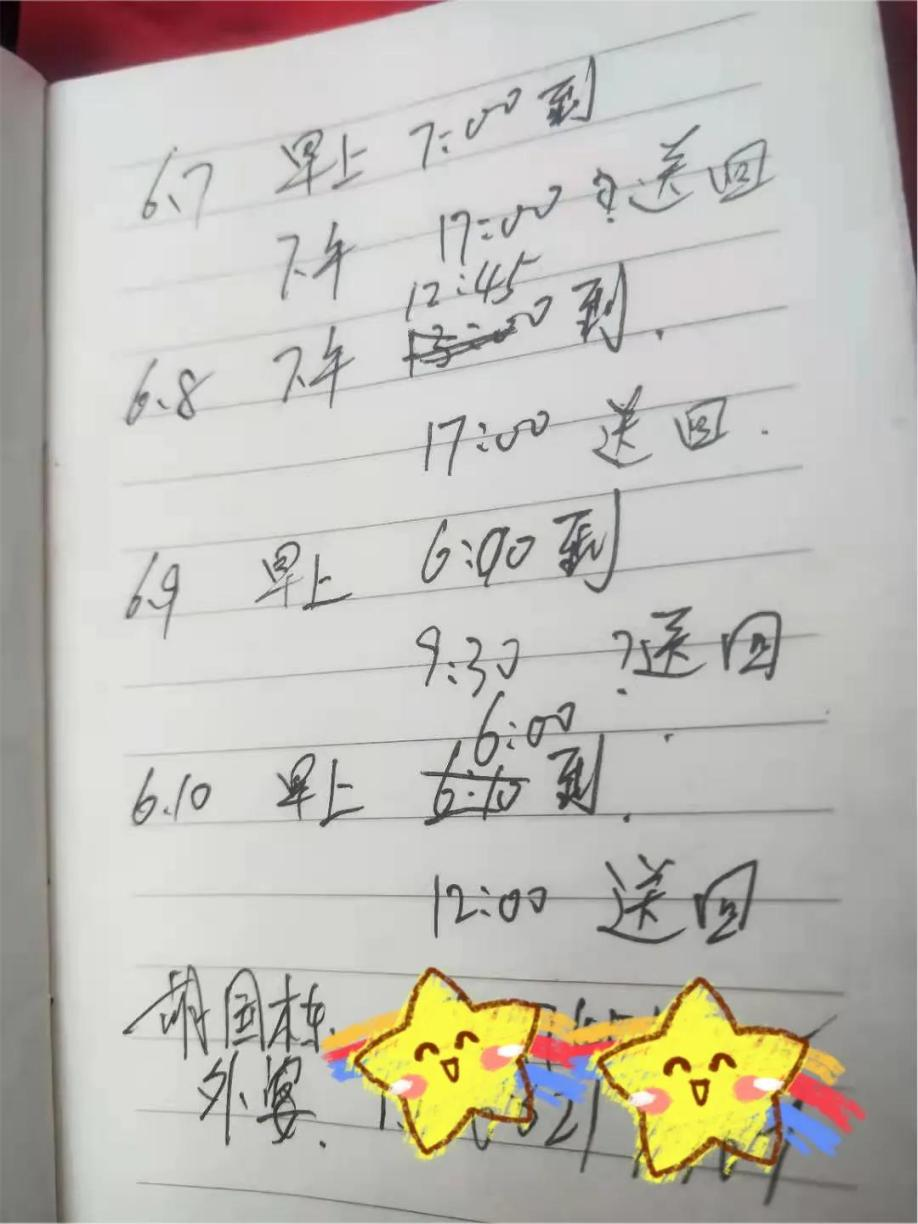 6.7 早上 7:00 到
下午 17:00 ? 送回
12:45
6.8 下午 13:00 到.
17:00 送回.
6.9 早上 6:00 到
9:30 ? 送回
6:00
6.10 早上 6:10 到.
12:00 送回
胡国栋
外宴.